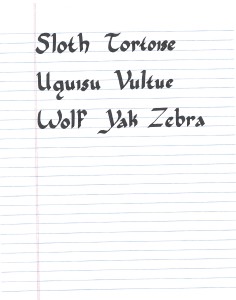 Sloth Tortoise
Uguisu Vultue
Wolf Yak Zebra